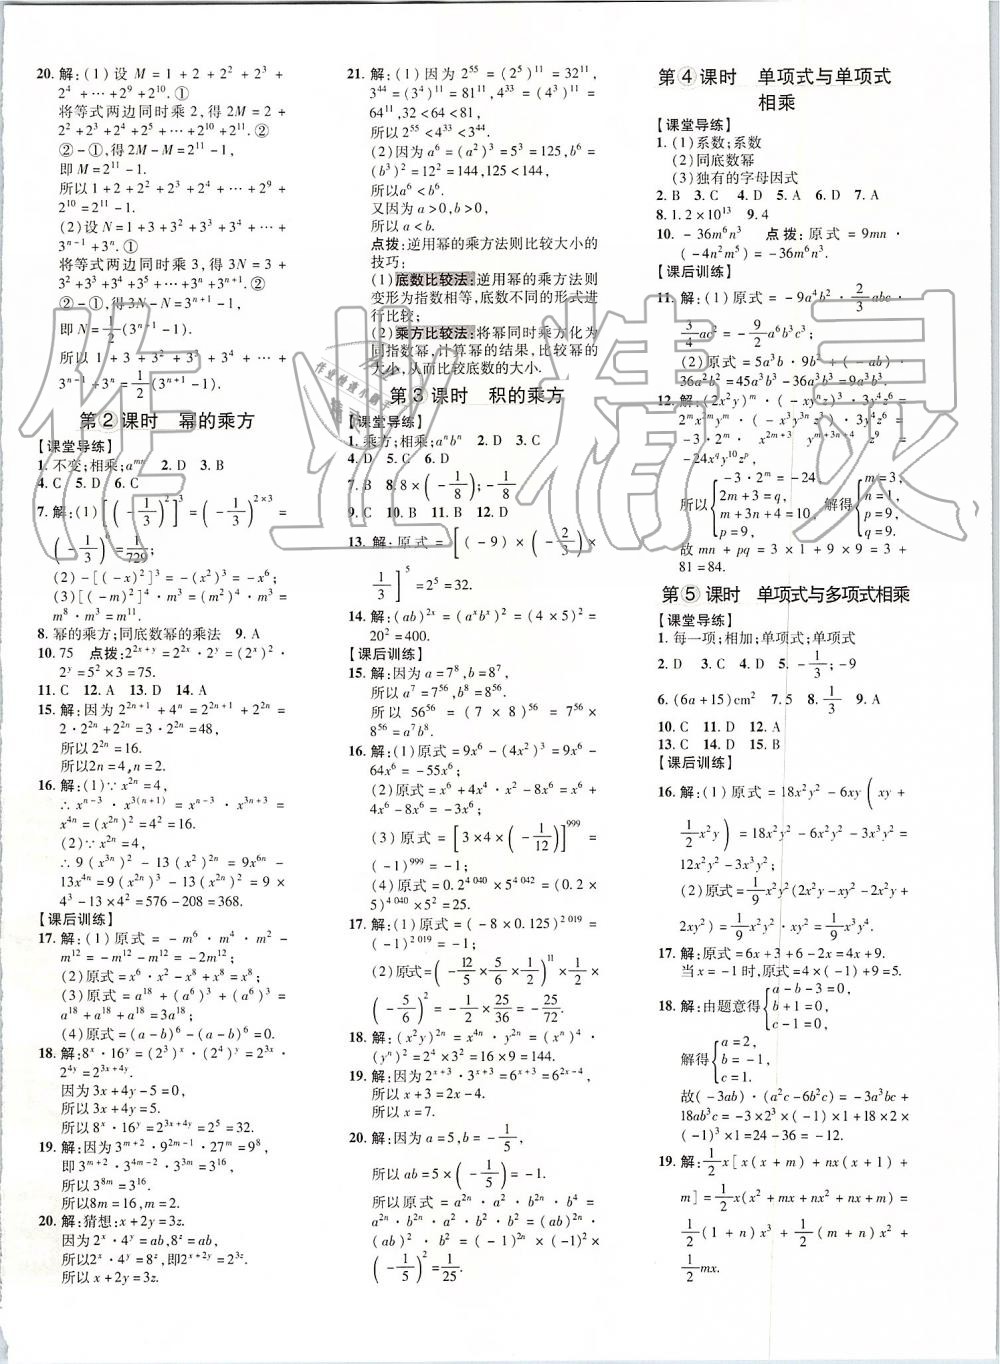 20. 解:(1) 设 M = 1 + 2 + 2² + 2³ +
2⁴ + ⋯ +2⁹ +2¹⁰. ①
将等式两边同时乘 2,得 2M = 2 +
2² +2³ +2⁴ +2⁵ + ⋯ +2¹⁰ +2¹¹. ②
② - ①,得2M - M = 2¹¹ - 1,
即 M = 2¹¹ - 1.
所以 1 + 2 + 2² + 2³ + 2⁴ + ⋯ + 2⁹ +
2¹⁰ = 2¹¹ - 1.
(2)设 N = 1 + 3 + 3² + 3³ + 3⁴ + ⋯ +
3ⁿ⁻¹ +3ⁿ. ①
将等式两边同时乘 3,得 3N = 3 +
3² +3³ +3⁴ +3⁵ + ⋯ +3ⁿ +3ⁿ⁺¹. ②
② - ①,得3N - N = 3ⁿ⁺¹ - 1,
即 N = 1/2(3ⁿ⁺¹ - 1).
所以 1 + 3 + 3² + 3³ + 3⁴ + ⋯ +
3ⁿ⁻¹ + 3ⁿ = 1/2(3ⁿ⁺¹ - 1).
第②课时 幂的乘方
【课堂导练】
1. 不变;相乘;aᵐⁿ 2. D 3. B
4. C 5. D 6. C
7. 解:(1)[(-1/3)²]³ = (-1/3)²ˣ³ =
(-1/3)⁶ = 1/729;
(2) -[(-x)²]³ = -(x²)³ = -x⁶;
(3)[(-m)²]⁴ · m³ = (m²)⁴ · m³ =
m⁸ · m³ = m¹¹.
8. 幂的乘方;同底数幂的乘法 9. A
10. 75 点拨:2^(2x+y) = 2^(2x) · 2^y = (2^x)² ·
2^y = 5² × 3 = 75.
11. C 12. A 13. D 14. A
15. 解:因为 2²ⁿ⁺¹ + 4ⁿ = 2²ⁿ⁺¹ + 2²ⁿ =
2 · 2²ⁿ + 2²ⁿ = 3 · 2²ⁿ = 48,
所以 2²ⁿ = 16.
所以2n = 4, n = 2.
16. 解:(1)∵ x²ⁿ = 4,
∴ xⁿ⁻³ · x³⁽ⁿ⁺¹⁾ = xⁿ⁻³ · x³ⁿ⁺³ =
x⁴ⁿ = (x²ⁿ)² = 4² = 16.
(2)∵ x²ⁿ = 4,
∴ 9(x³ⁿ)² - 13(x²)²ⁿ = 9x⁶ⁿ -
13x⁴ⁿ = 9(x²ⁿ)³ - 13(x²ⁿ)² = 9 ×
4³ - 13 × 4² = 576 - 208 = 368.
【课后训练】
17. 解:(1)原式 = -m⁶ · m⁴ · m² -
m¹² = -m¹² - m¹² = -2m¹²;
(2)原式 = x⁸ + x⁸ - x⁸ = x⁸;
(3)原式 = a¹⁸ + (a⁶)³ + (a⁶)³ =
a¹⁸ + a¹⁸ + a¹⁸ = 3a¹⁸;
(4)原式 = (a - b)⁶ - (a - b)⁶ = 0.
18. 解:8^x · 16^y = (2³)^x · (2⁴)^y = 2^(3x) ·
2^(4y) = 2^(3x+4y).
因为 3x + 4y - 5 = 0,
所以 3x + 4y = 5.
所以 8^x · 16^y = 2^(3x+4y) = 2⁵ = 32.
19. 解:因为 3ᵐ⁺² · 9²ᵐ⁻¹ · 27ᵐ = 9⁸,
即 3ᵐ⁺² · 3⁴ᵐ⁻² · 3³ᵐ = 3¹⁶,
所以 3⁸ᵐ = 3¹⁶.
所以8m = 16, m = 2.
20. 解:猜想:x + 2y = 3z.
因为 2^x · 4^y = ab, 8^z = ab,
所以2^x · 4^y = 8^z,即2^(x+2y) = 2^(3z).
所以 x + 2y = 3z.
21. 解:(1)因为 2⁵⁵ = (2⁵)¹¹ = 32¹¹,
3⁴⁴ = (3⁴)¹¹ = 81¹¹, 4³³ = (4³)¹¹ =
64¹¹, 32 < 64 < 81,
所以 2⁵⁵ < 4³³ < 3⁴⁴.
(2)因为 a⁶ = (a²)³ = 5³ = 125, b⁶ =
(b³)² = 12² = 144, 125 < 144,
所以a⁶ < b⁶.
又因为 a > 0, b > 0,
所以 a < b.
点拨:逆用幂的乘方法则比较大小的
技巧:
(1)底数比较法:逆用幂的乘方法则
变形为指数相等,底数不同的形式进
行比较;
(2)乘方比较法:将幂同时乘方化为
同指数幂,计算幂的结果,比较幂的
大小,从而比较底数的大小.
第③课时 积的乘方
【课堂导练】
1. 乘方;相乘;aⁿbⁿ 2. D 3. C
4. D 5. C 6. D
7. B 8. 8 × (-1/8); -1/8
9. C 10. B 11. B 12. D
13. 解:原式 = [(-9) × (-2/3) ×
1/3]⁵ = 2⁵ = 32.
14. 解:(ab)^(2x) = (a^x b^x)² = (4 × 5)² =
20² = 400.
【课后训练】
15. 解:因为 a = 7⁸, b = 8⁷,
所以 a⁷ = 7⁵⁶, b⁸ = 8⁵⁶.
所以 56⁵⁶ = (7 × 8)⁵⁶ = 7⁵⁶ ×
8⁵⁶ = a⁷b⁸.
16. 解:(1)原式 = 9x⁶ - (4x²)³ = 9x⁶ -
64x⁶ = -55x⁶;
(2)原式 = x⁶ + 4x⁴ · x² - 8x⁶ = x⁶ +
4x⁶ - 8x⁶ = -3x⁶;
(3)原式 = [3 × 4 × (-1/12)]⁹⁹⁹ =
(-1)⁹⁹⁹ = -1;
(4)原式 = 0.2⁴ ⁰⁴⁰ × 5⁴ ⁰⁴² = (0.2 ×
5)⁴ ⁰⁴⁰ × 5² = 25.
17. 解:(1)原式 = (-8 × 0.125)² ⁰¹⁹ =
(-1)² ⁰¹⁹ = -1;
(2)原式 = (-12/5 × 5/6 × 1/2)¹¹ × 1/2 ×
(-5/6)² = -1/2 × 25/36 = -25/72.
18. 解:(x²y)²ⁿ = x⁴ⁿ · y²ⁿ = (xⁿ)⁴ ·
(yⁿ)² = 2⁴ × 3² = 16 × 9 = 144.
19. 解:因为2ˣ⁺³ · 3ˣ⁺³ = 6ˣ⁺³ = 6²ˣ⁻⁴,
所以 x + 3 = 2x - 4.
所以 x = 7.
20. 解:因为 a = 5, b = -1/5,
所以 ab = 5 × (-1/5) = -1.
所以原式 = a²ⁿ · a² · b²ⁿ · b⁴ =
a²ⁿ · b²ⁿ · a² · b² · b² = (ab)²ⁿ ·
(ab)² · b² = (-1)²ⁿ × (-1)² ×
(-1/5)² = 1/25.
第④课时 单项式与单项式
相乘
【课堂导练】
1. (1)系数;系数
(2)同底数幂
(3)独有的字母因式
2. B 3. C 4. D 5. A 6. D 7. A
8. 1.2 × 10¹³ 9. 4
10. -36m⁶n³ 点拨:原式 = 9mn ·
(-4n²m⁵) = -36m⁶n³.
【课后训练】
11. 解:(1)原式 = -9a⁴b² · 2/3abc ·
3/4ac² = -9/2a⁶b³c³;
(2)原式 = 5a³b · 9b² + (-ab) ·
36a²b² = 45a³b³ - 36a³b³ = 9a³b³.
12. 解:(2x²y)ᵐ · (-xyⁿz)³ · 3y⁴z⁶ =
(2ᵐx²ᵐyᵐ) · (-x³y³ⁿz³) · 3y⁴z⁶ =
-3 · 2ᵐ · x²ᵐ⁺³yᵐ⁺³ⁿ⁺⁴z⁹ =
-24x^q y¹⁰z^p,
所以{-3 · 2ᵐ = -24, 2m + 3 = q, m + 3n + 4 = 10, p = 9, 解得{m = 3, n = 1, p = 9, q = 9.
故 mn + pq = 3 × 1 + 9 × 9 = 3 +
81 = 84.
第⑤课时 单项式与多项式相乘
【课堂导练】
1. 每一项;相加;单项式;单项式
2. D 3. C 4. D 5. -1/3; -9
6. (6a + 15) cm² 7. 5 8. 1/3 9. A
10. C 11. D 12. A
13. C 14. D 15. B
【课后训练】
16. 解:(1)原式 = 18x²y² - 6xy(xy +
1/2x²y) = 18x²y² - 6x²y² - 3x³y² =
12x²y² - 3x³y²;
(2)原式 = 1/9x²y²(2xy - x²y +
2xy²) = 1/9x²y² · xy² = 1/9x³y⁴.
17. 解:原式 = 6x + 3 + 6 - 2x = 4x + 9.
当x = -1时,原式 = 4 × (-1) + 9 = 5.
18. 解:由题意得{a - b - 3 = 0, b + 1 = 0, c - 1 = 0,
解得{a = 2, b = -1, c = 1.
故(-3ab) · (a²c - 6b²c) = -3a³bc +
18ab³c = -3 × 2³ × (-1) × 1 + 18 × 2 ×
(-1)³ × 1 = 24 - 36 = -12.
19. 解:1/2x[x(x + m) + nx(x + 1) +
m] = 1/2x(x² + mx + nx² + nx + m) =
1/2(1 + n)x³ + 1/2(m + n)x² +
1/2mx.
作业精灵